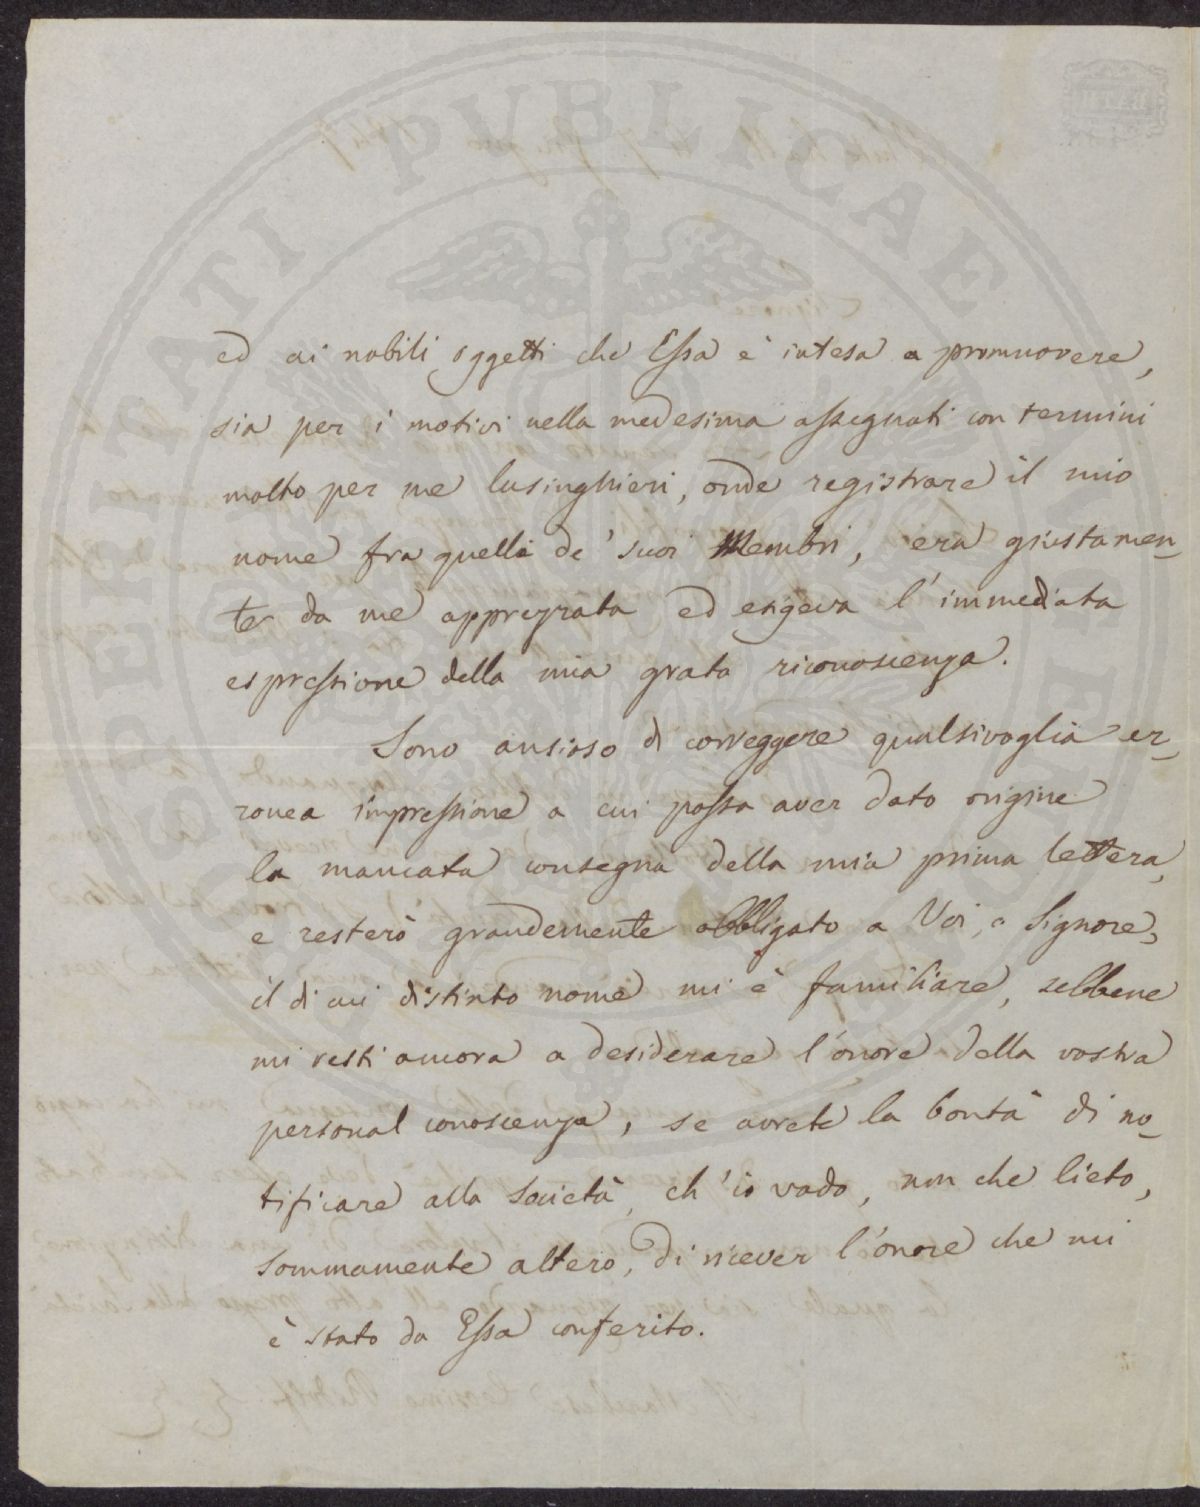 PROSPERITATI PUBLICAE AUGENDAE
BATH
ed ai nobili oggetti che Essa è intesa a promuovere,
sia per i motivi nella medesima assegnati con termini
molto per me lusinghieri, onde registrare il mio
nome fra quelli de' suoi Membri, era giustamen-
te da me apprezzata ed esigeva l'immediata
espressione della mia grata riconoscenza.
Sono ansioso di correggere qualsivoglia er-
ronea impressione a cui possa aver dato origine
la mancata consegna della mia prima lettera,
e resterò grandemente obbligato a Voi, o Signore,
il di cui distinto nome mi è familiare, sebbene
mi resti ancora a desiderare l'onore della vostra
personal conoscenza, se avrete la bontà di no-
tificare alla Società, ch'io vado, non che lieto,
sommamente altero, di ricever l'onore che mi
è stato da Essa conferito.